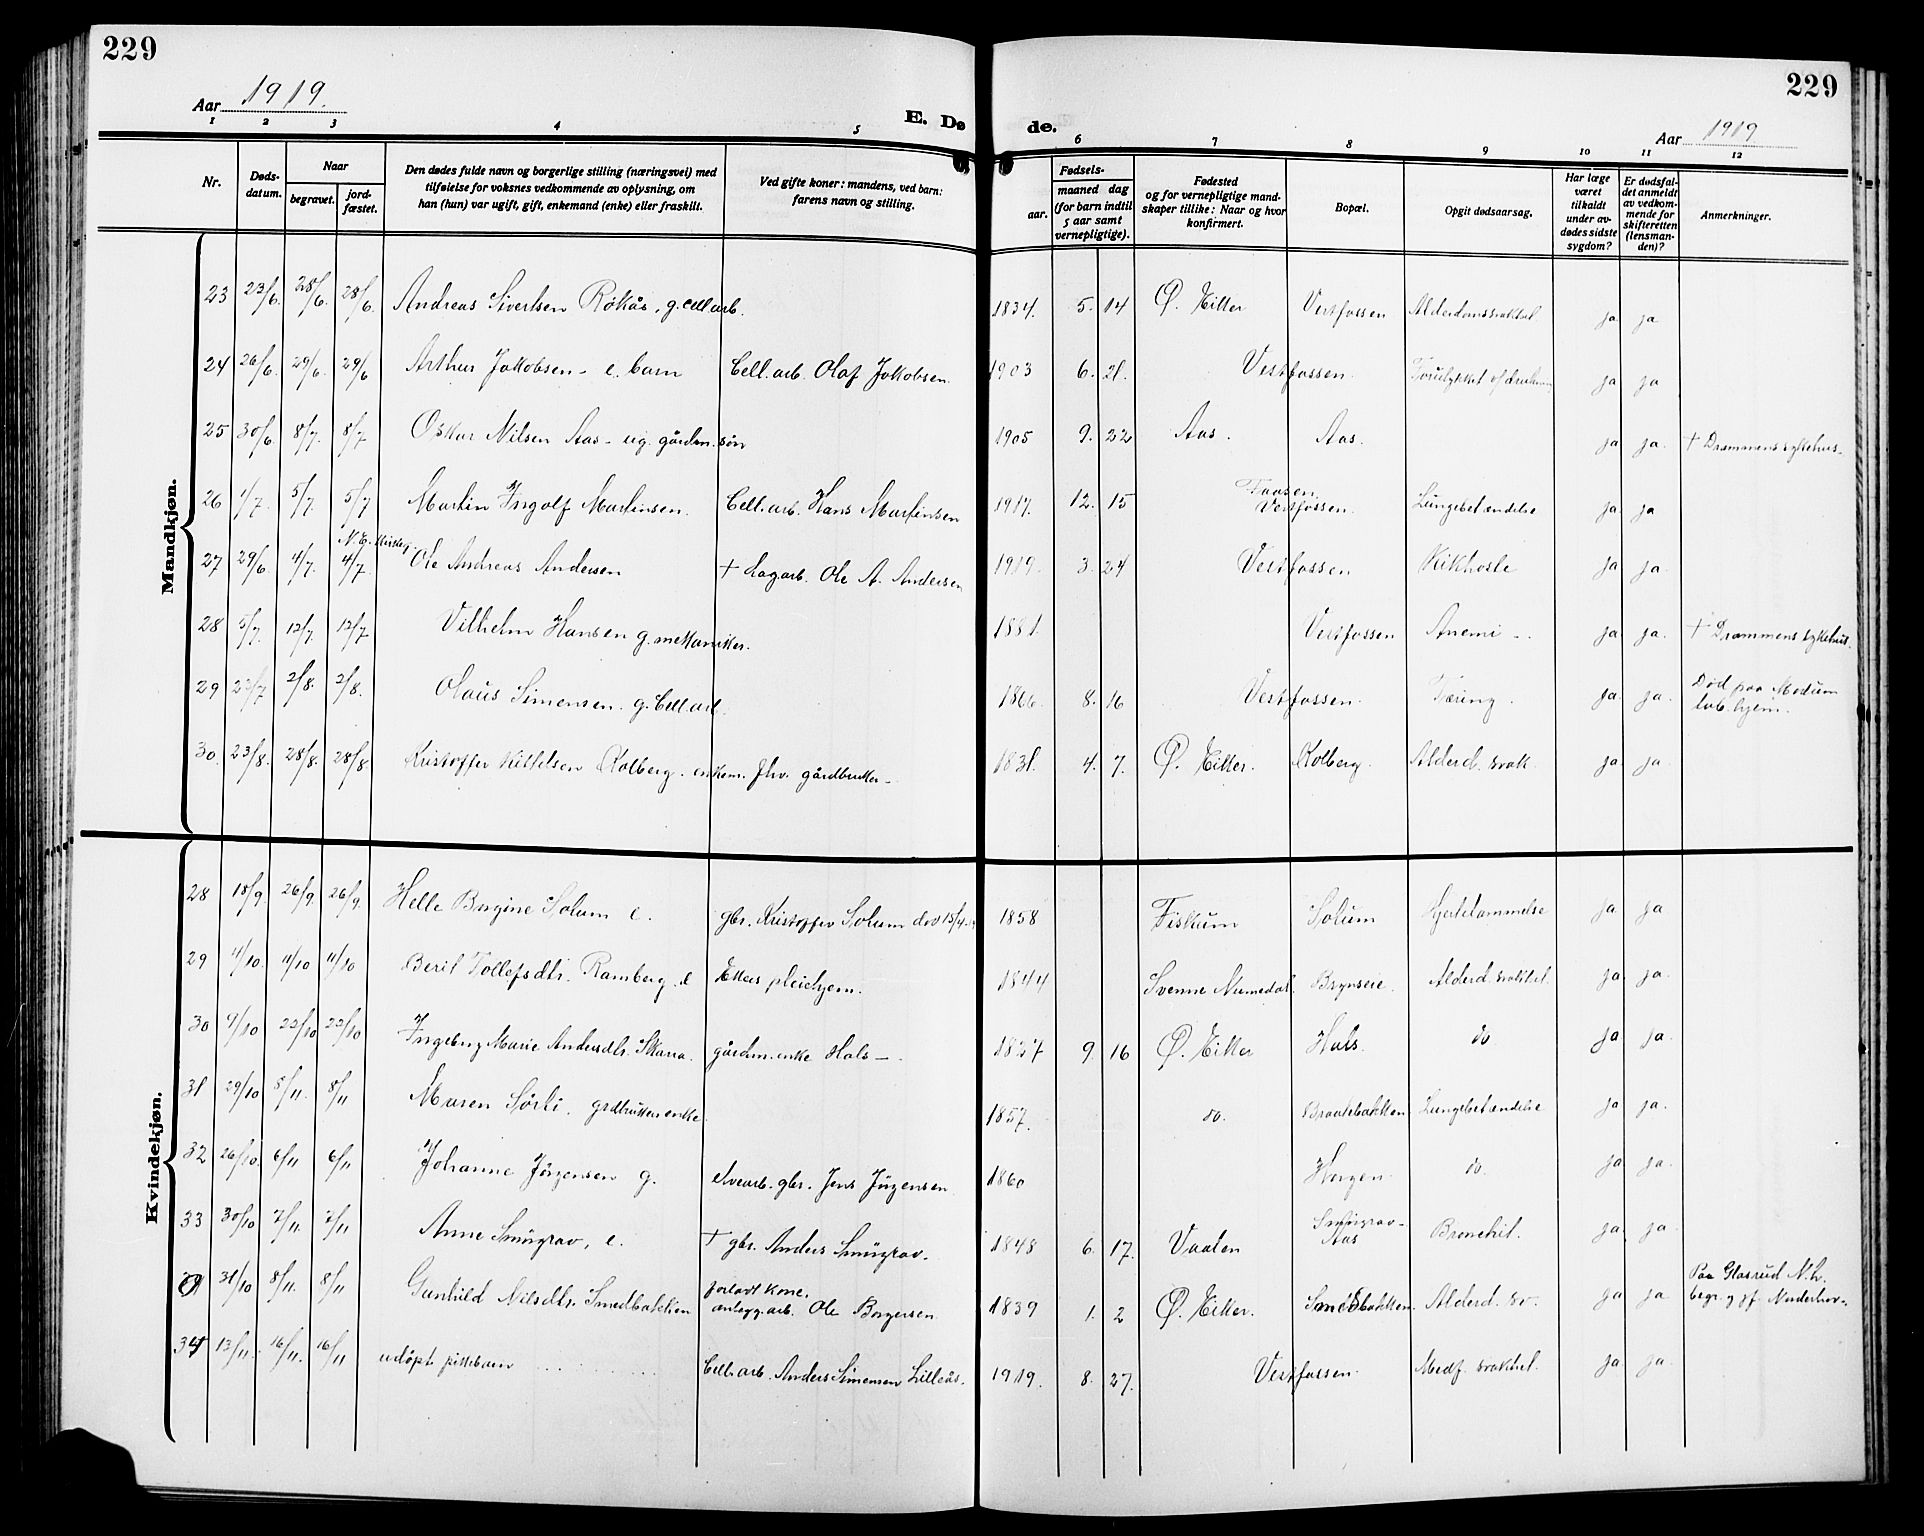 229
229
Aar 1919.
E. Dø
de.
Aar 1919
1 2 3 4 5 6 7 8 9 10 11 12
Nr.
Døds-
datum.
Naar
begravet.
jord-
fæstet.
Den dødes fulde navn og borgerlige stilling (næringsvei) med
tilføielse for voksnes vedkommende av oplysning, om
han (hun) var ugift, gift, enkemand (enke) eller fraskilt.
Ved gifte koner: mandens, ved barn:
farens navn og stilling.
Fødsels-
aar.
maaned dag
(for barn indtil
5 aar samt
vernepligtige).
Fødested
og for vernepligtige mand-
skaper tillike: Naar og hvor
konfirmert.
Bopæl.
Opgit dødsaarsag.
Har læge
været
tilkaldt
under av-
dødes sidste
sygdom?
Er dødsfal-
det anmeldt
av vedkom-
mende for
skifteretten
(lensman-
den)?
Anmerkninger.
Mandkjøn.
23 23/6. 28/6. 28/6. Andreas Sivertsen Røkås, g. cell.arb. 1834. 5. 14 Ø. Eiker Vestfossen Alderdomssvakhet ja ja
24 26/6. 29/6. 29/6 Arthur Jakobsen - e. barn Cell.arb. Olaf Jakobsen. 1903 6. 21. Vestfossen. ja ja
25 30/6. 8/7. 8/7 Oskar Nilsen Aas - ug. gårdm. søn 1905 9. 22 Aas. Aas. ja ja. † Drammens sykehus.
26 1/7. 5/7. 5/7 Martin Ingolf Martinsen. Cell.arb. Hans Martinsen 1917. 12. 15 Vestfossen. Lungebetændelse ja ja
27 29/6. 4/7. 4/7. Ole Andreas Andersen † Dagarb. Ole A. Andersen 1919. 3. 24 Vestfossen Kikhoste ja ja.
28 5/7. 12/7. 12/7 Vilhelm Hansen g. mekaniker. 1881. Vestfossen Anemi - ja ja. † Drammens sykehus.
29 2/8. 2/8. Olaus Simensen. g. Cell.arb. 1866. 8. 16 Vestfossen. Tæring. ja ja. Død paa Modum
tub. hjem.
30. 23/8. 28/8. 28/8. Kristoffer Kittelsen Kolberg. enkem. fhv. gårdbruker - 1831. 4. 7. Ø. Eiker. Kolberg. Alderd. svak. ja ja.
Kvindekjøn.
28 18/9. 26/9. 26/9. Helle Birgine Solum e. gbr. Kristoffer Solum 1858 Fiskum Solum Hjertelammelse ja ja
29 4/10. 11/10 11/10 Berit Tollefsdtr. Ramberg. e Eikers pleiehjem. 1844 Svenne Numedal. Alderd. svakhet. ja ja.
30 9/10 22/10 22/10 Ingeborg Marie Andersdtr. Skara. gårdm. enke Hals -. 1827 9. 16 Ø. Eiker Hals. do ja ja.
31 29/10 5/11. 8/11 Maren Sørli. grdbrukerenke. 1857. do. Braatebakken. Lungebetændelse ja ja.
32 26/10. 6/11 6/11 Johanne Jørgensen g. elvearb. gbr. Jens Jørgensen 1860 Horgen do. ja ja.
33 30/10 7/11. 7/11 Anne Smørgrav, e. † gbr. Anders Smørgrav. 1848 6. 17. Smørgrav-
Aas Bronchit. ja ja.
31/10 8/11. 8/11 Gunhild Nilsdtr. Smedbakken forladt kone.
anlegg.arb. Ole Borgersen 1839 1. 2 Ø. Eiker. Smedbakken. Alderd. sv. ja ja Paa Glasrud N.h.
34 13/11. 16/11. 16/11 udøpt pikebarn Cell.arb. Anders Simensen Lilleås. 1919. 8. 27. Vestfossen. Medf. svakhet. ja ja.